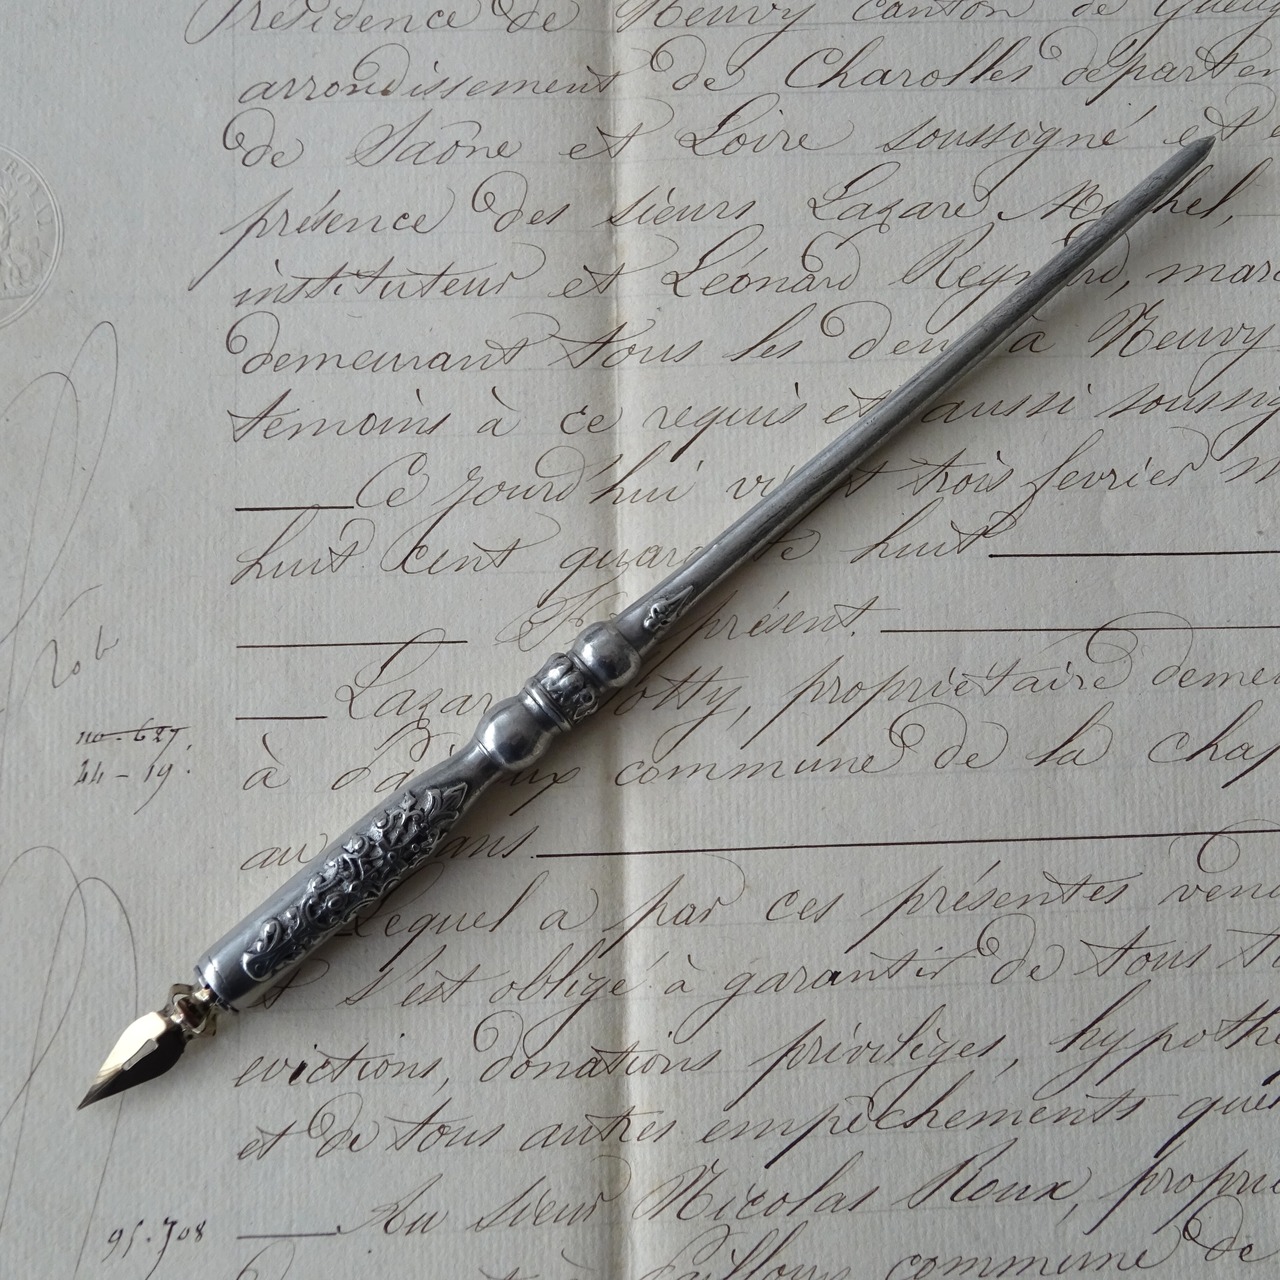 résidence de Neuvy canton de Gueug
arrondissement de Charolles départem
de Saône et Loire soussigné et
présence des sieurs Lazare Michel,
instituteur et Léonard Reynard, mar
demeurant tous les deux à Neuvy
temoins à ce requis et aussi soussig
Ce jourd'hui vingt trois fevrier m
huit cent quarante huit
présent.
Lazare otty, propriétaire demeu
à commune de la chap
au ans.
Lequel a par ces présentes vend
et s'est obligé à garantir de tous t
evictions, donations, privilèges, hypothè
et de tous autres empêchements quel
Au sieur Nicolas Roux, proprié
commune de
206
no. 627.
24-19.
95.708